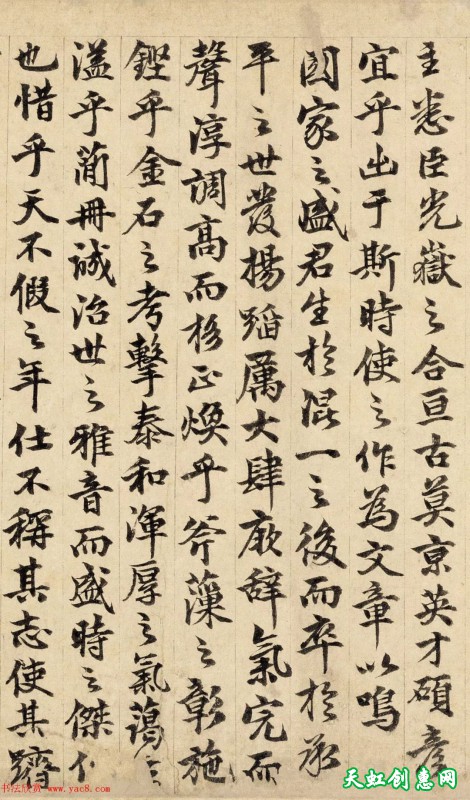 主悉臣光嶽之合亘古莫京英才碩彥
宜乎出于斯時使之作為文章以鳴
國家之盛君生於混一之後而卒於承
平之世發揚蹈厲大肆厥辭氣完而
聲淳調高而格正煥乎斧藻之彰施
鏗乎金石之考擊泰和渾厚之氣藹〻
溢乎簡冊誠治世之雅音而盛時之傑作
也惜乎天不假之年仕不稱其志使其躋
书法欣赏 www.yac8.com
天虹创惠网